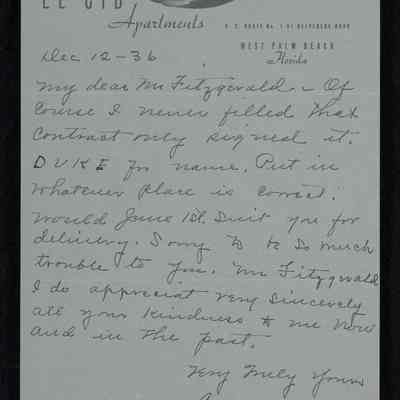 EL CID
Apartments
U. S. ROUTE No. 1 AT BELVEDERE ROAD
WEST PALM BEACH
Florida
Dec 12-36
My dear Mr Fitzgerald. - Of
course I never filled that
contract only signed it.
DUKE for name. Put in
whatever place is correct.
Would June 1st. suit you for
delivery. Sorry to be so much
trouble to you. Mr Fitzgerald
I do appreciat very sincerely
all your kindness to me now
and in the past.
Very truly yours